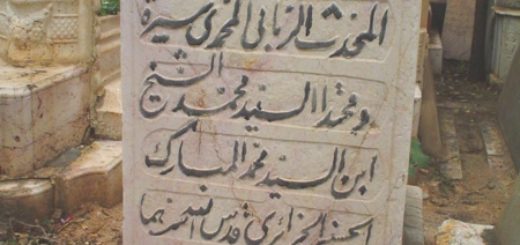 المحدث الرباني المحمدي سيرة
ومحتدا السيد محمد الشيخ
ابن السيد محمد المبارك
الحسني الجزائري قدس الله